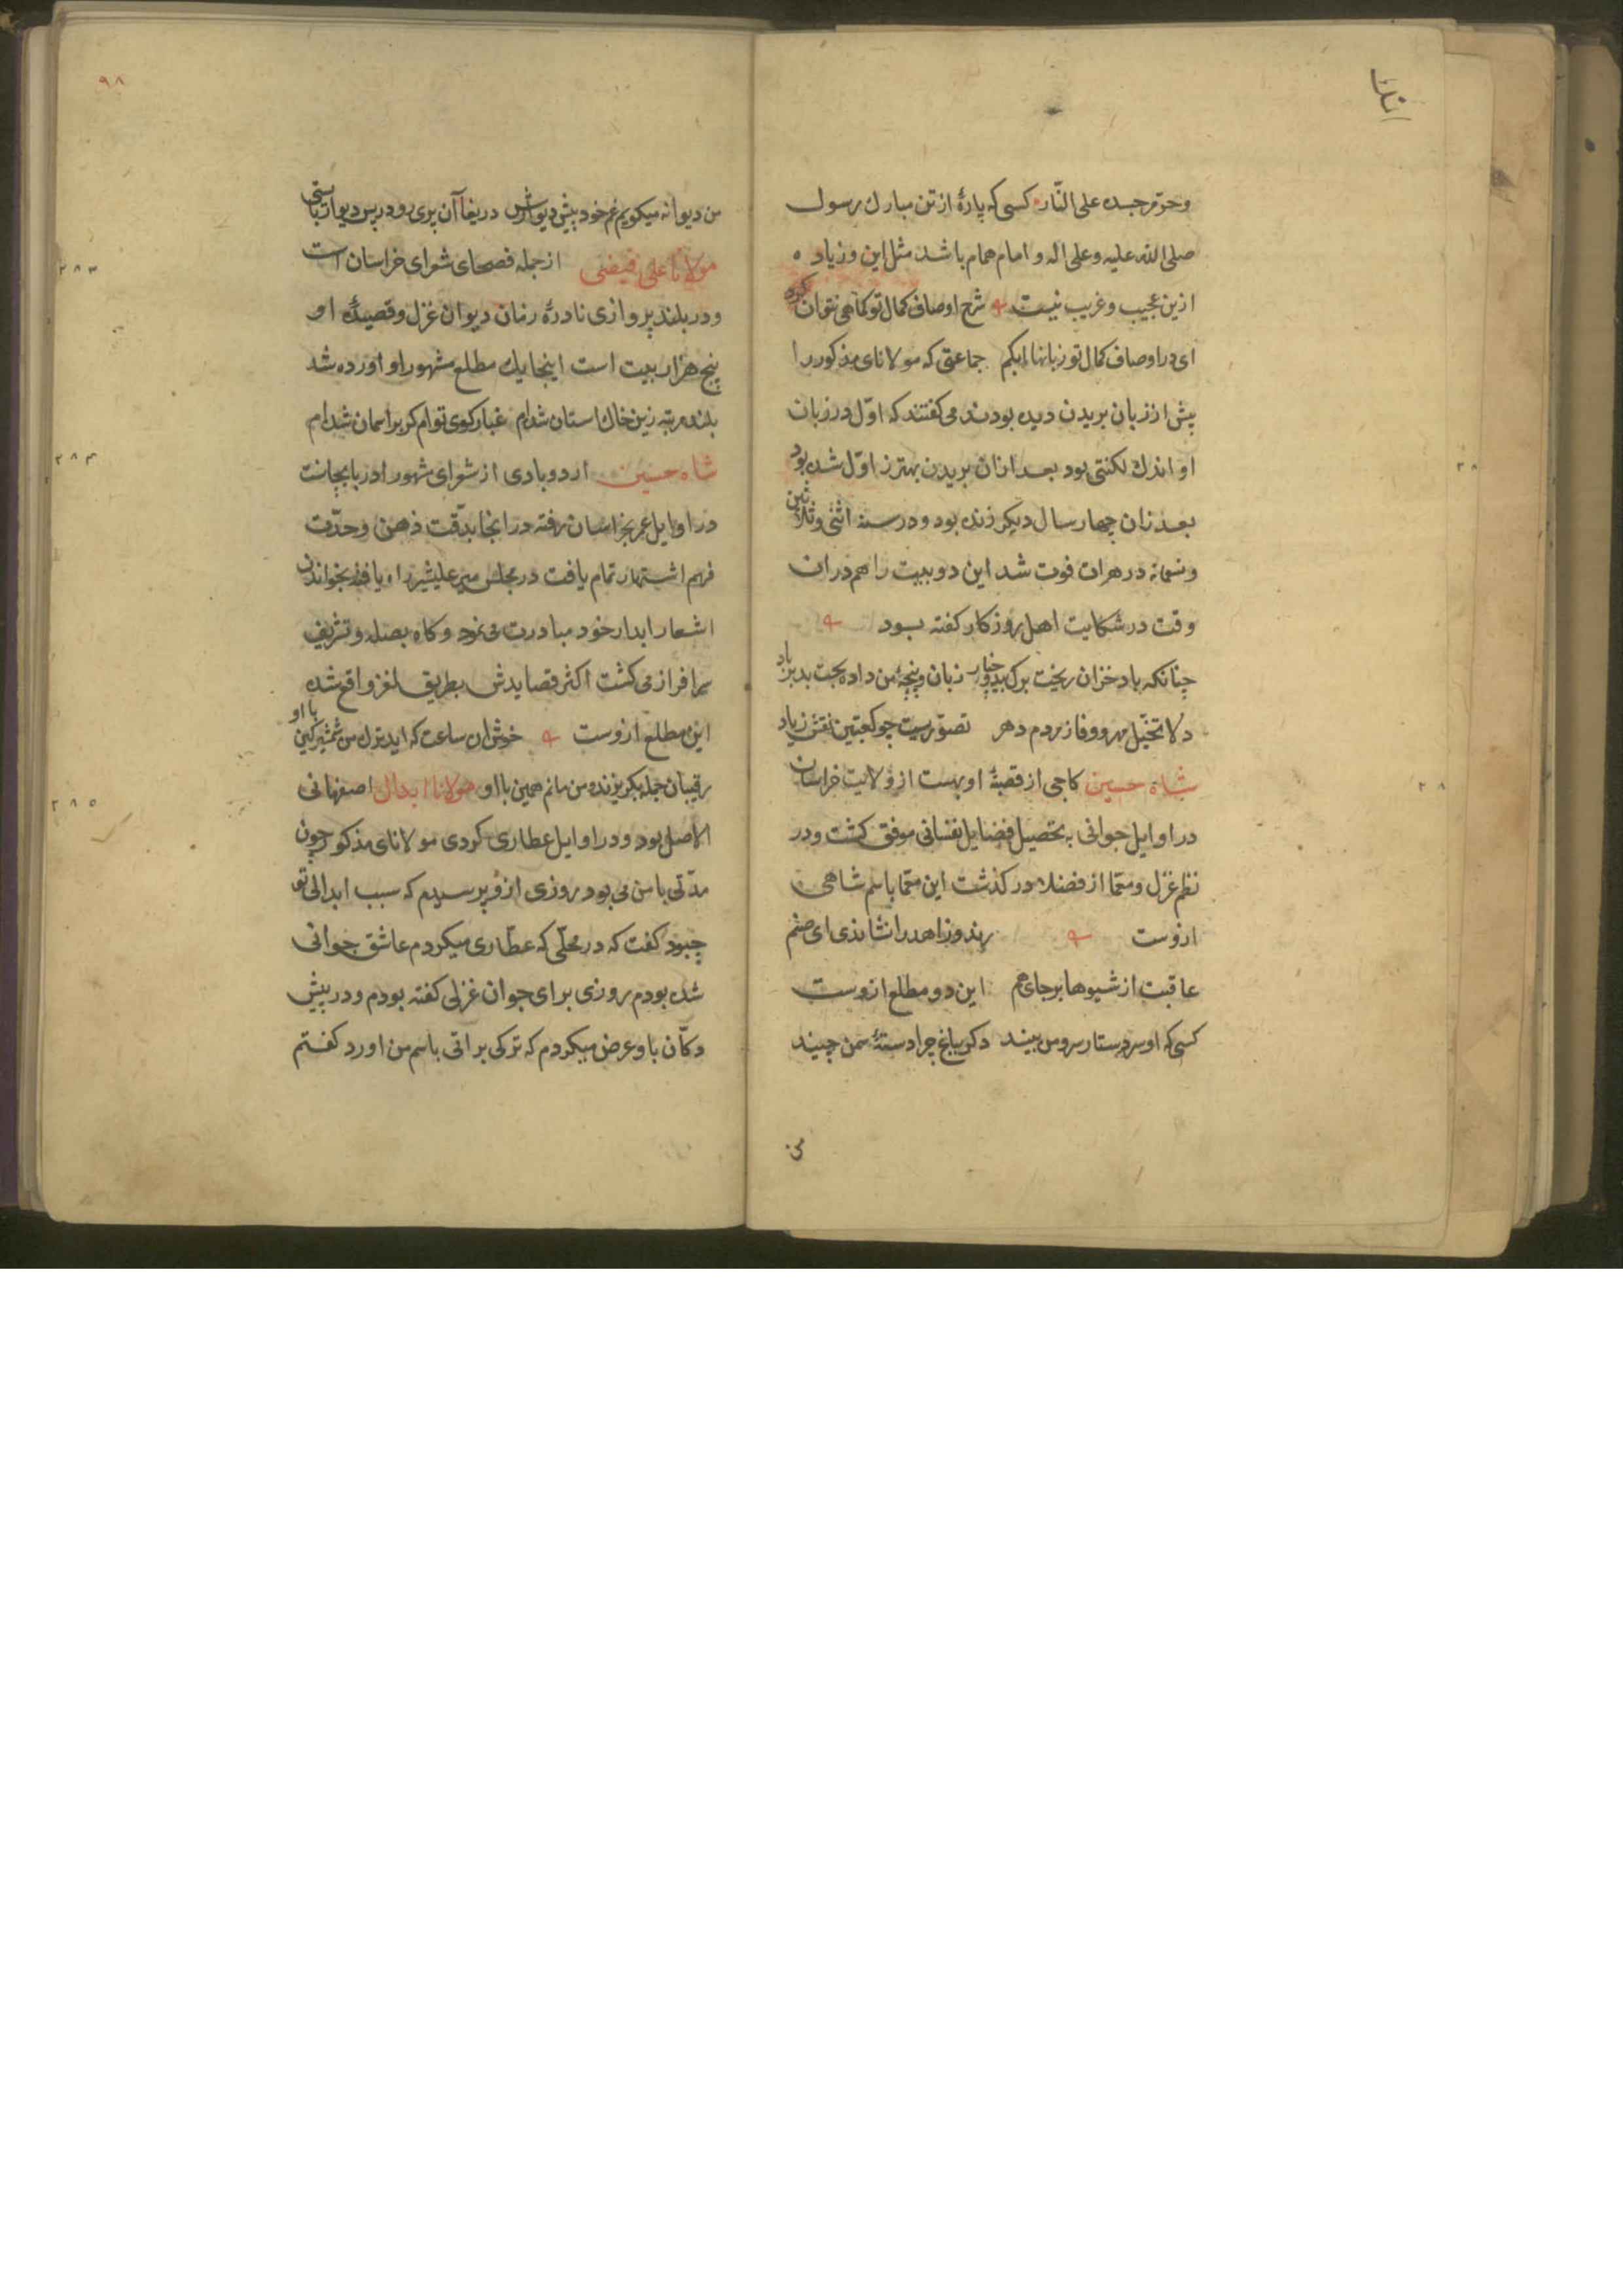 وحرّم جسده علی النّار کسی که پارهٔ از تن مبارك رسول
صلی الله علیه وعلی اله و امام همام باشد مثل این وزیاده
ازین عجیب وغریب نیست شرح اوصاف کمال تو کماهی نتوان کرد
ای در اوصاف کمال تو زبانها ابکم جماعتی که مولانای مذکور را
پیش از زبان بریدن دیده بودند می کفتند که اوّل در زبان
او اندك لکنتی بود بعد ازان بریدن بهتر ز اوّل شده بود
بعد زان چهار سال دیکر زنده بود و در سنه اثنی وثلاثین
وتسمائه در هرات فوت شد این دو بیت را هم دران
وقت در شکایت اهل روزکار کفته بود
چنانکه باد خزان ریخت برك بید وچنار زبان وپنجهٔ من داده بخت بد بر باد
دلا تخیّل مهر و وفا ز مردم دهر تصوّریست چو کعبتین نقش زیاد
شاه حسین کاجی از قصبهٔ اوبهست از ولایت خراسان
در اوایل جوانی به تحصیل فضایل نفسانی موفق کشت ودر
نظم غزل ومعّما از فضلا در کذشت این معّما باسم شاهی
ازوست رند وزاهد را نشاندی ای صنم
عاقبت از شیوها بر جای هم این دو مطلع ازوست
کسی که او سر دستار سرو من بیند دکر بباغ چرا دستهٔ سمن چیند
من
۹۸
من دیوانه میکویم غم خود پیش دیوارش دریغا آن پری رو در پس دیوار بایستی
۲۸۳
مولانا علی فیضی از جمله فصحای شعرای خراسان است
ودر بلند پروازی نادرهٔ زمان دیوان غزل وقصیدهٔ او
پنج هزار بیت است اینجا یك مطلع مشهور او اورده شد
بلند مرتبه زین خاك استان شده‌ام غبار کوی توام کر بر اسمان شده‌ام
۲۸۴
شاه حسین اردوبادی از شعرای مشهور ادربایجانست
در اوایل عمر بخراسان رفته در انجا بدّقت ذهن وحدّت
فهم اشتهار تمام یافت در مجلس میر علیشیر راه یافته بخواندن
اشعار ابدار خود مبادرت می نمود وکاه بصله وتشریف
سرافراز می کشت اکثر قصایدش بطریق لغز واقع شده
این مطلع ازوست خوش ان ساعت که اید ترك من شمشیر کین با او
رقیبان جمله بکریزند ومن مانم همین با او مولانا ابدال اصفهانی
۲۸۵
الاصل بود و در اوایل عطاری کردی مولانای مذکور چون
مدّتی با من می بود روزی ازو پرسیدم که سبب ابدالی تو
چبود کفت که در محلّی که عطّاری میکردم عاشق جوانی
شده بودم روزی برای جوان غزلی کفته بودم و در پیش
دکّان باو عرض میکردم که ترکی براتی باسم من اورد کفتم